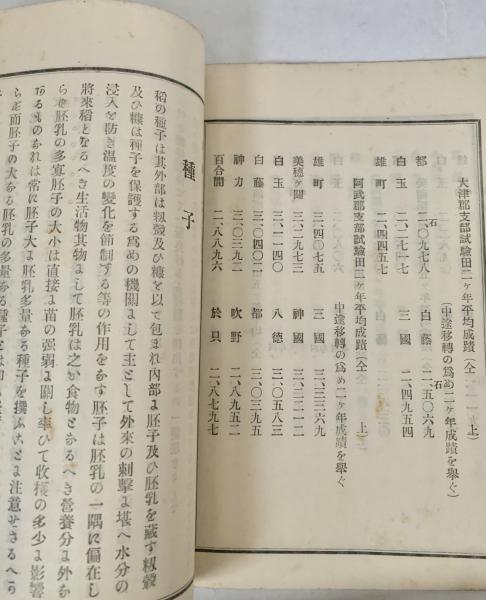 大津郡支部試驗田二ヶ年平均成蹟(仝上)
(中途移轉の爲め二ヶ年成蹟を擧ぐ)
都 二、〇九七八石 白藤 二、五〇六九石
白玉 二、二七一七 三國 二、四九五四
雄町 二、四四五七
阿武郡支部試驗田二ヶ年平均成蹟(仝上)
中途移轉の爲め二ヶ年成蹟を擧ぐ
雄町 三、四〇七五 三國 三、三二六九
美穗ヶ關 三、二九七三 神國 三、二二一二
白玉 三、一一四〇 八德 三、〇五八三
白藤 三、〇四〇一 都 三、〇三九五
神力 三、〇三九二 吹野 二、八九五二
百合間 二、八八九六 於貝 二、八七九七
種子
稻の種子は其外部は籾殼及ひ糠を以て包まれ内部よ胚子及ひ胚乳を藏す籾殼
及ひ糠は種子を保護する爲めの機關よして主として外來の刺擊よ堪へ水分の
浸入を防き温度の變化を節制する等の作用をあす胚子は胚乳の一隅に偏在し
將來稻となるへき生活物其物よして胚乳は之か食物とあるへき營養分よ外あ
らす胚乳の多寡胚子の大小は直接よ苗の强弱よ關し牽ひて收穫の多少よ影響
するものあれは常に胚子大よ胚乳多量ある種子を撰ふことよ注意せさるへか
らす而胚子の大ある胚乳の多量ある種子とは